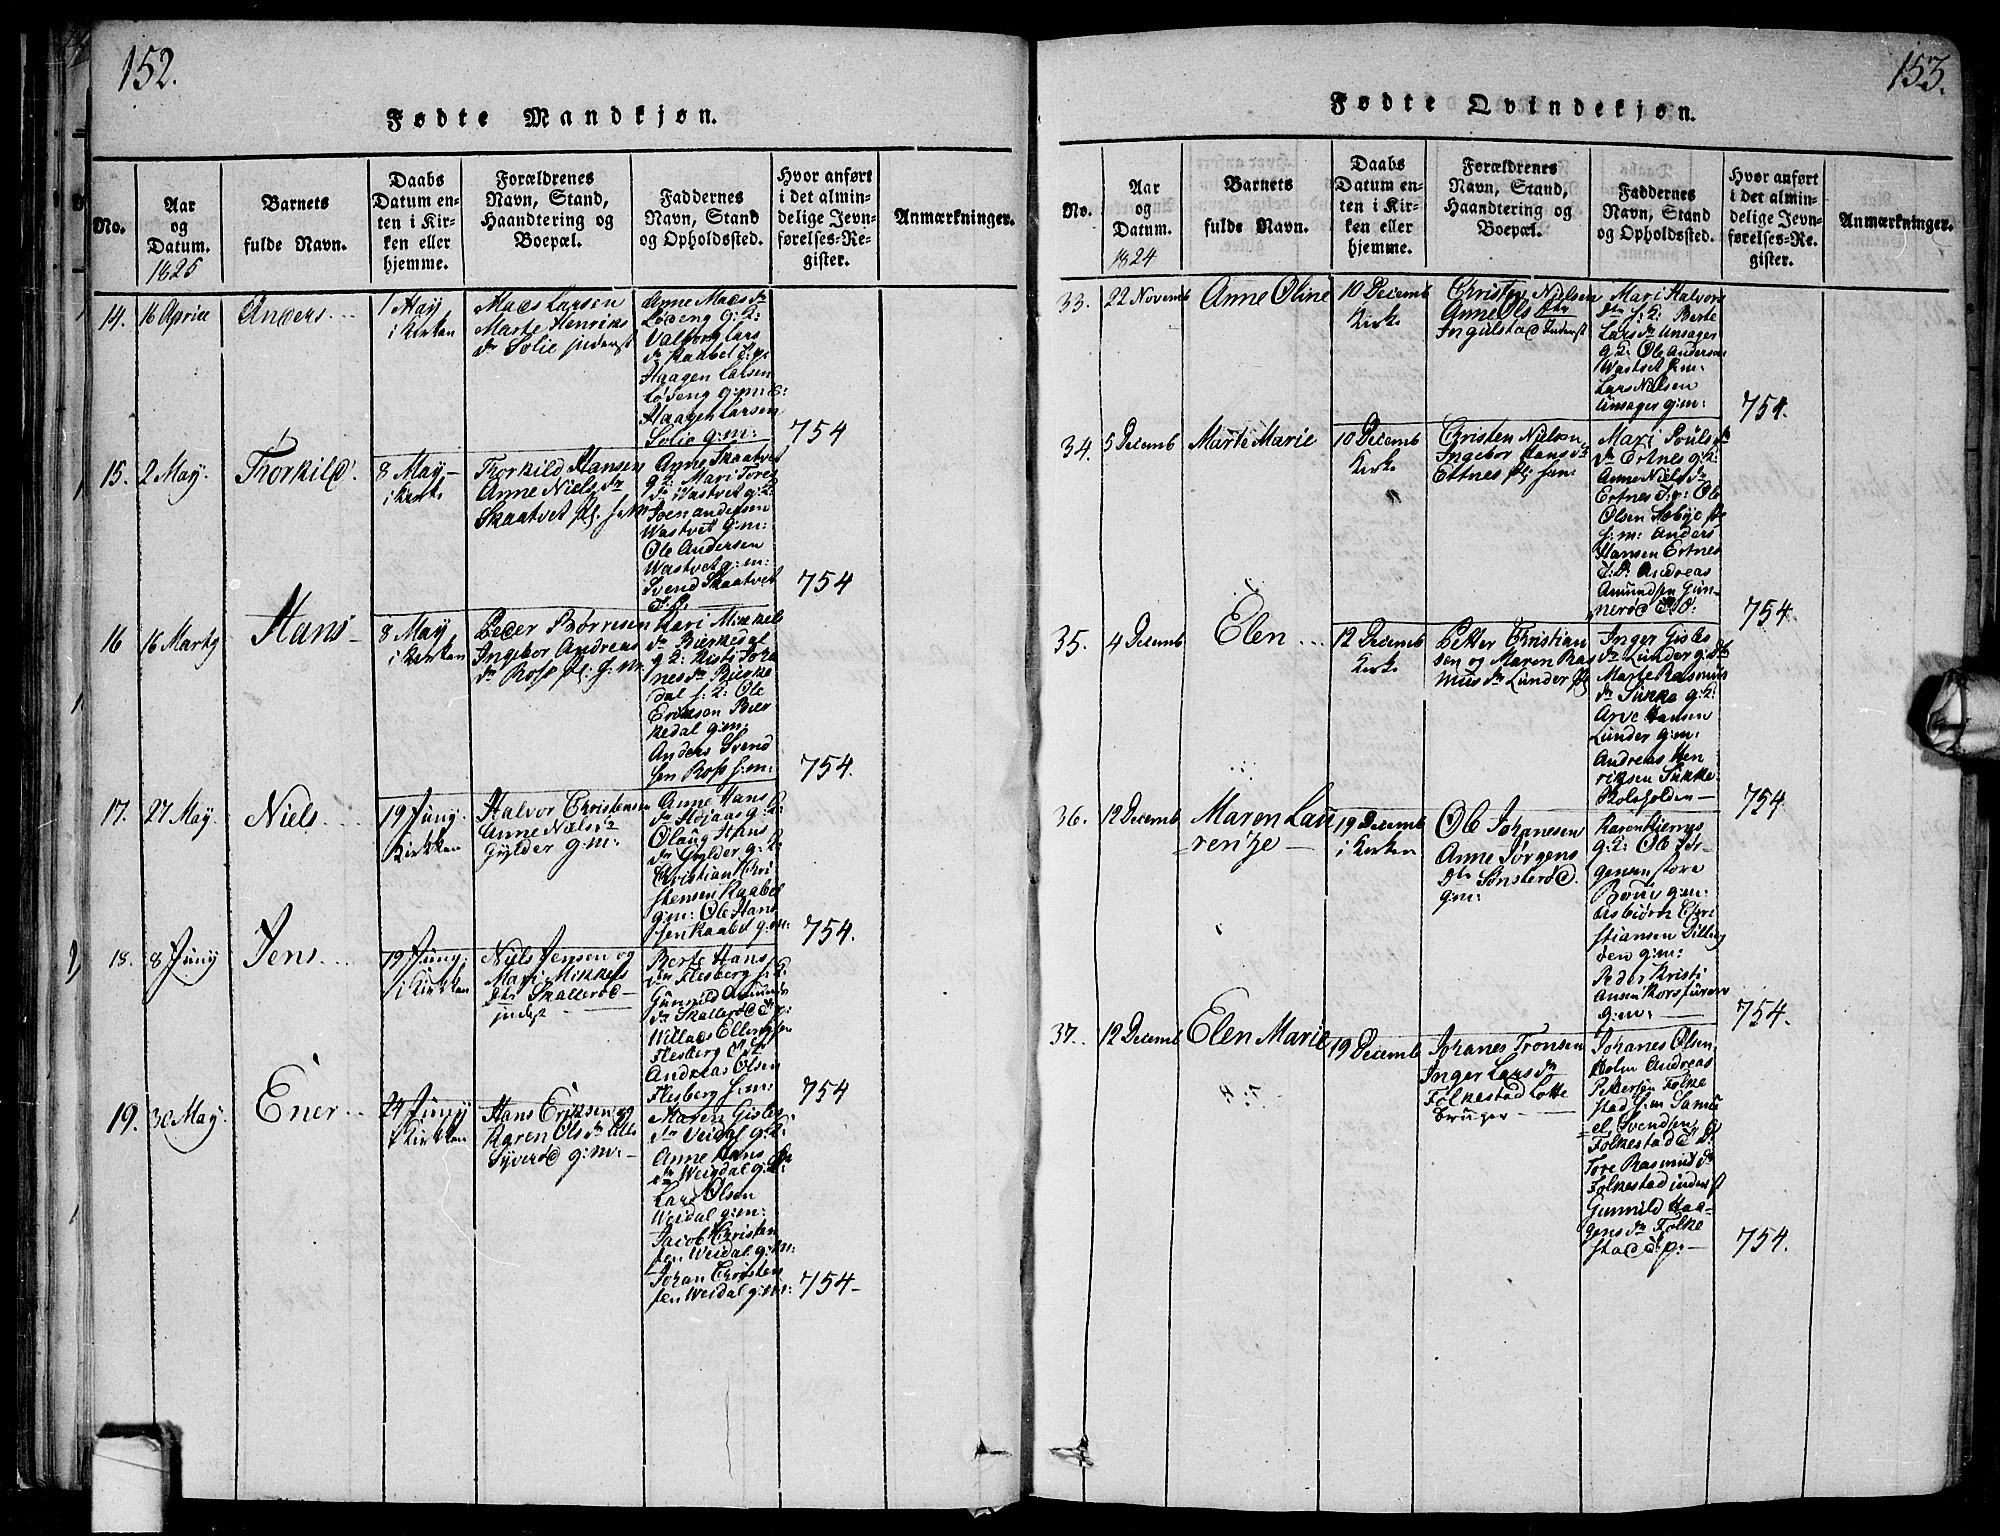 152.
Fødte Mandkjøn.
No.
Aar
og
Datum.
1825
Barnets
fulde Navn.
Daabs
Datum en-
ten i Kir-
ken eller
hjemme.
Forældrenes
Navn, Stand,
Haandtering og
Boepæl.
Faddernes
Navn, Stand
og Opholdssted.
Hvor anført
i det almin-
delige Jevn-
førelses-Re-
gister.
Anmærkninger.
14.
16 Aprill
Anders
1 May
i Kirken
Mads Larsen
Marte Henriks
dr Solie inderst
Anne Mads dr
Lødeng g:K:
Valborg Lars
dr Raabel T:p:
Haagen Larsen
Lødeng g:m:
Haagen Larsen
Solie g:m:
754
15.
2 May.
Thorkild.
8 May
i Kirke
Thorkild Hansen
Anne Niels dr
Skaatvet pl. h.M
Anne Skaatvet
g:K: Mari Tores
dr Wastvet g:K:
Joen andersen
Wastvet g:m:
Ole Andersen
Wastvet g:m:
Svend Skaatvet
754
16
16 Marty
Hans
8 May
i Kirken
Peder Børresen
Ingebor Andreas
dr Ross pl. h.m.
Kari Mikkels
dr Bierkedal
g:K: Kisti Joha
nes dr Bierke
dal h:K: Ole
Eriksen Bier
kedal g:m:
Anders Svend
sen Ross h:m:
754.
17.
27 May.
Niels
19 Juny.
Kirkken
Halvor Christensen
Anne Niels dr
Gylder g:m:
Anne Hans
dr Højaas g:K:
Olaug Hans
dr Gylder g:K:
Christian Chri
stensen Raabel
g:m: Ole Hans
sen Raabel g:m:
754.
18.
8 Juny
Jens
19 Juny.
i Kirkken
Niels Jensen og
Mari Mikkels
dtr Skallerød
inderst
Berte Hans
dr Flesberg h:K:
Gunnild Amunds
dr Skallerød T:p:
Willads Ellingsen
Flesberg
Andreas Olsen
Flesberg h:m:
754
19.
30 May.
Ener
24 Juny
Kirkken
Hans Eriksen og
Karen Ols dr Lille
Syverød g:m:
Maren Gisles
dr Veidal g:K:
Anne Hans
dr Weidal g:K:
Lars Olsen
Weidal g:m:
Jacob Christen
sen Weidal g:m:
Johan Christen
sen Weidal g:m:
754
153.
Fødte Qvindekjøn.
No.
Aar
og
Datum.
1824
Barnets
fulde Navn.
Daabs
Datum en-
ten i Kir-
ken eller
hjemme.
Forældrenes
Navn, Stand,
Haandtering og
Boepæl.
Faddernes
Navn, Stand
og Opholdssted.
Hvor anført
i det almin-
delige Jevn-
førelses-Re-
gister.
Anmærkninger.
33.
22 Novemb
Anne Oline
10 Decemb
Kirke
Christen Nielsen
Anne Ols dtr
Ingulstad Inderst
Mari Halvors
dtr h:K: Berte
Lars dr Unsager
g:K: Ole Andersen
Wastvet h:m:
Lars Nilsen
Unsager g:m:
754.
34.
5 Decemb
Marte Marie
10 Decemb
Kirke
Christen Nielsen
Ingebor Hans dr
Ertnes pl: han:
Mari Pouls
dr Ertnes g:K:
Anne Niels dr
Ertnes T:p: Ole
Olsen Sæbye pl
h:m: Anders
Hansen Ertnes
T:D: Andreas
Amundsen Gun-
nerød T:D:
754.
35.
4 Decemb
Elen
12 Decemb
Kirke
Petter Christian
sen og Maren Ras
mus dr Lunder pl
Inger Gisles
dr Lunder g:K:
Marte Rasmus
dr Sukke g:K:
Arve Hansen
Lunder g:m:
Andreas Hen
riksen Sukke
Kolsholden
754
36.
12 Decemb
Maren Lau
rentze
19 Decemb
i Kirken
Ole Johanesen
Anne Jørgens
dtr Sønsterød
g:m:
Karen Hiernes
g:K: Ole Jør-
gensen store
Borue g:m:
Asbiørn Chri
stiansen Dilling
den g:m:
Peder Kristi
Ansen Korsfuren
g:m:
754.
37.
12 Decemb
Elen Marie
19 Decemb
Johanes Tronsen
Inger Lars dr
Folkestad Lotte
bruger
Johanes Olsen
Holm Andreas
Pedersen Folke
stad h:m Samu
el Svendsen
Folkestad T:D:
Tore Rasmus dr
Folkestad inderst
Gunnild Haa-
gens dr Folke
stad T:p:
754.